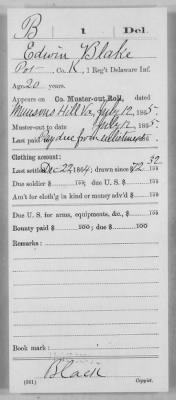 B 1 Del.
Edwin Blake
Pvt, Co. K, 1 Reg't Delaware Inf.
Age 20 years.
Appears on Co. Muster-out Roll, dated
Munsons Hill Va, July 12, 1865.
Muster-out to date July 12, 1865.
Last paid Pay due from enlistment
Clothing account:
Last settled Dec 22, 1864; drawn since $72 32/100
Due soldier $ 100; due U. S. $ 100
Am't for cloth'g in kind or money adv'd $ 100
Due U. S. for arms, equipments, &c., $ 100
Bounty paid $ 100; due $ 100
Remarks:
Book mark:
Black
(361) Copyist.